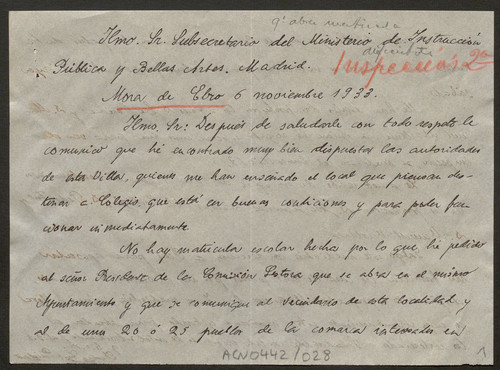 qª abra matricula
Ilmo. Sr. Subsecretario del Ministerio de Instrucción
Pública y Bellas Artes. Madrid.
Inspección 2ª
Mora de Ebro 6 noviembre 1933.
Ilmo. Sr: Después de saludarle con todo respeto le
comunico que hé encontrado muy bien dispuestas las autoridades
de esta Villa, quienes me han enseñado el local que piensan des-
tinar a Colegio, que está en buenas condiciones y para poder fun-
cionar inmediatamente.
No hay matricula escolar hecha por lo que hé pedido
al señor Presidente de la Comisión Gestora que se abra en el mismo
Ayuntamiento y que se comunique al vecindario de esta localidad y
al de unos 20 ó 25 pueblos de la comarca interesados en
ACNO442/028
1